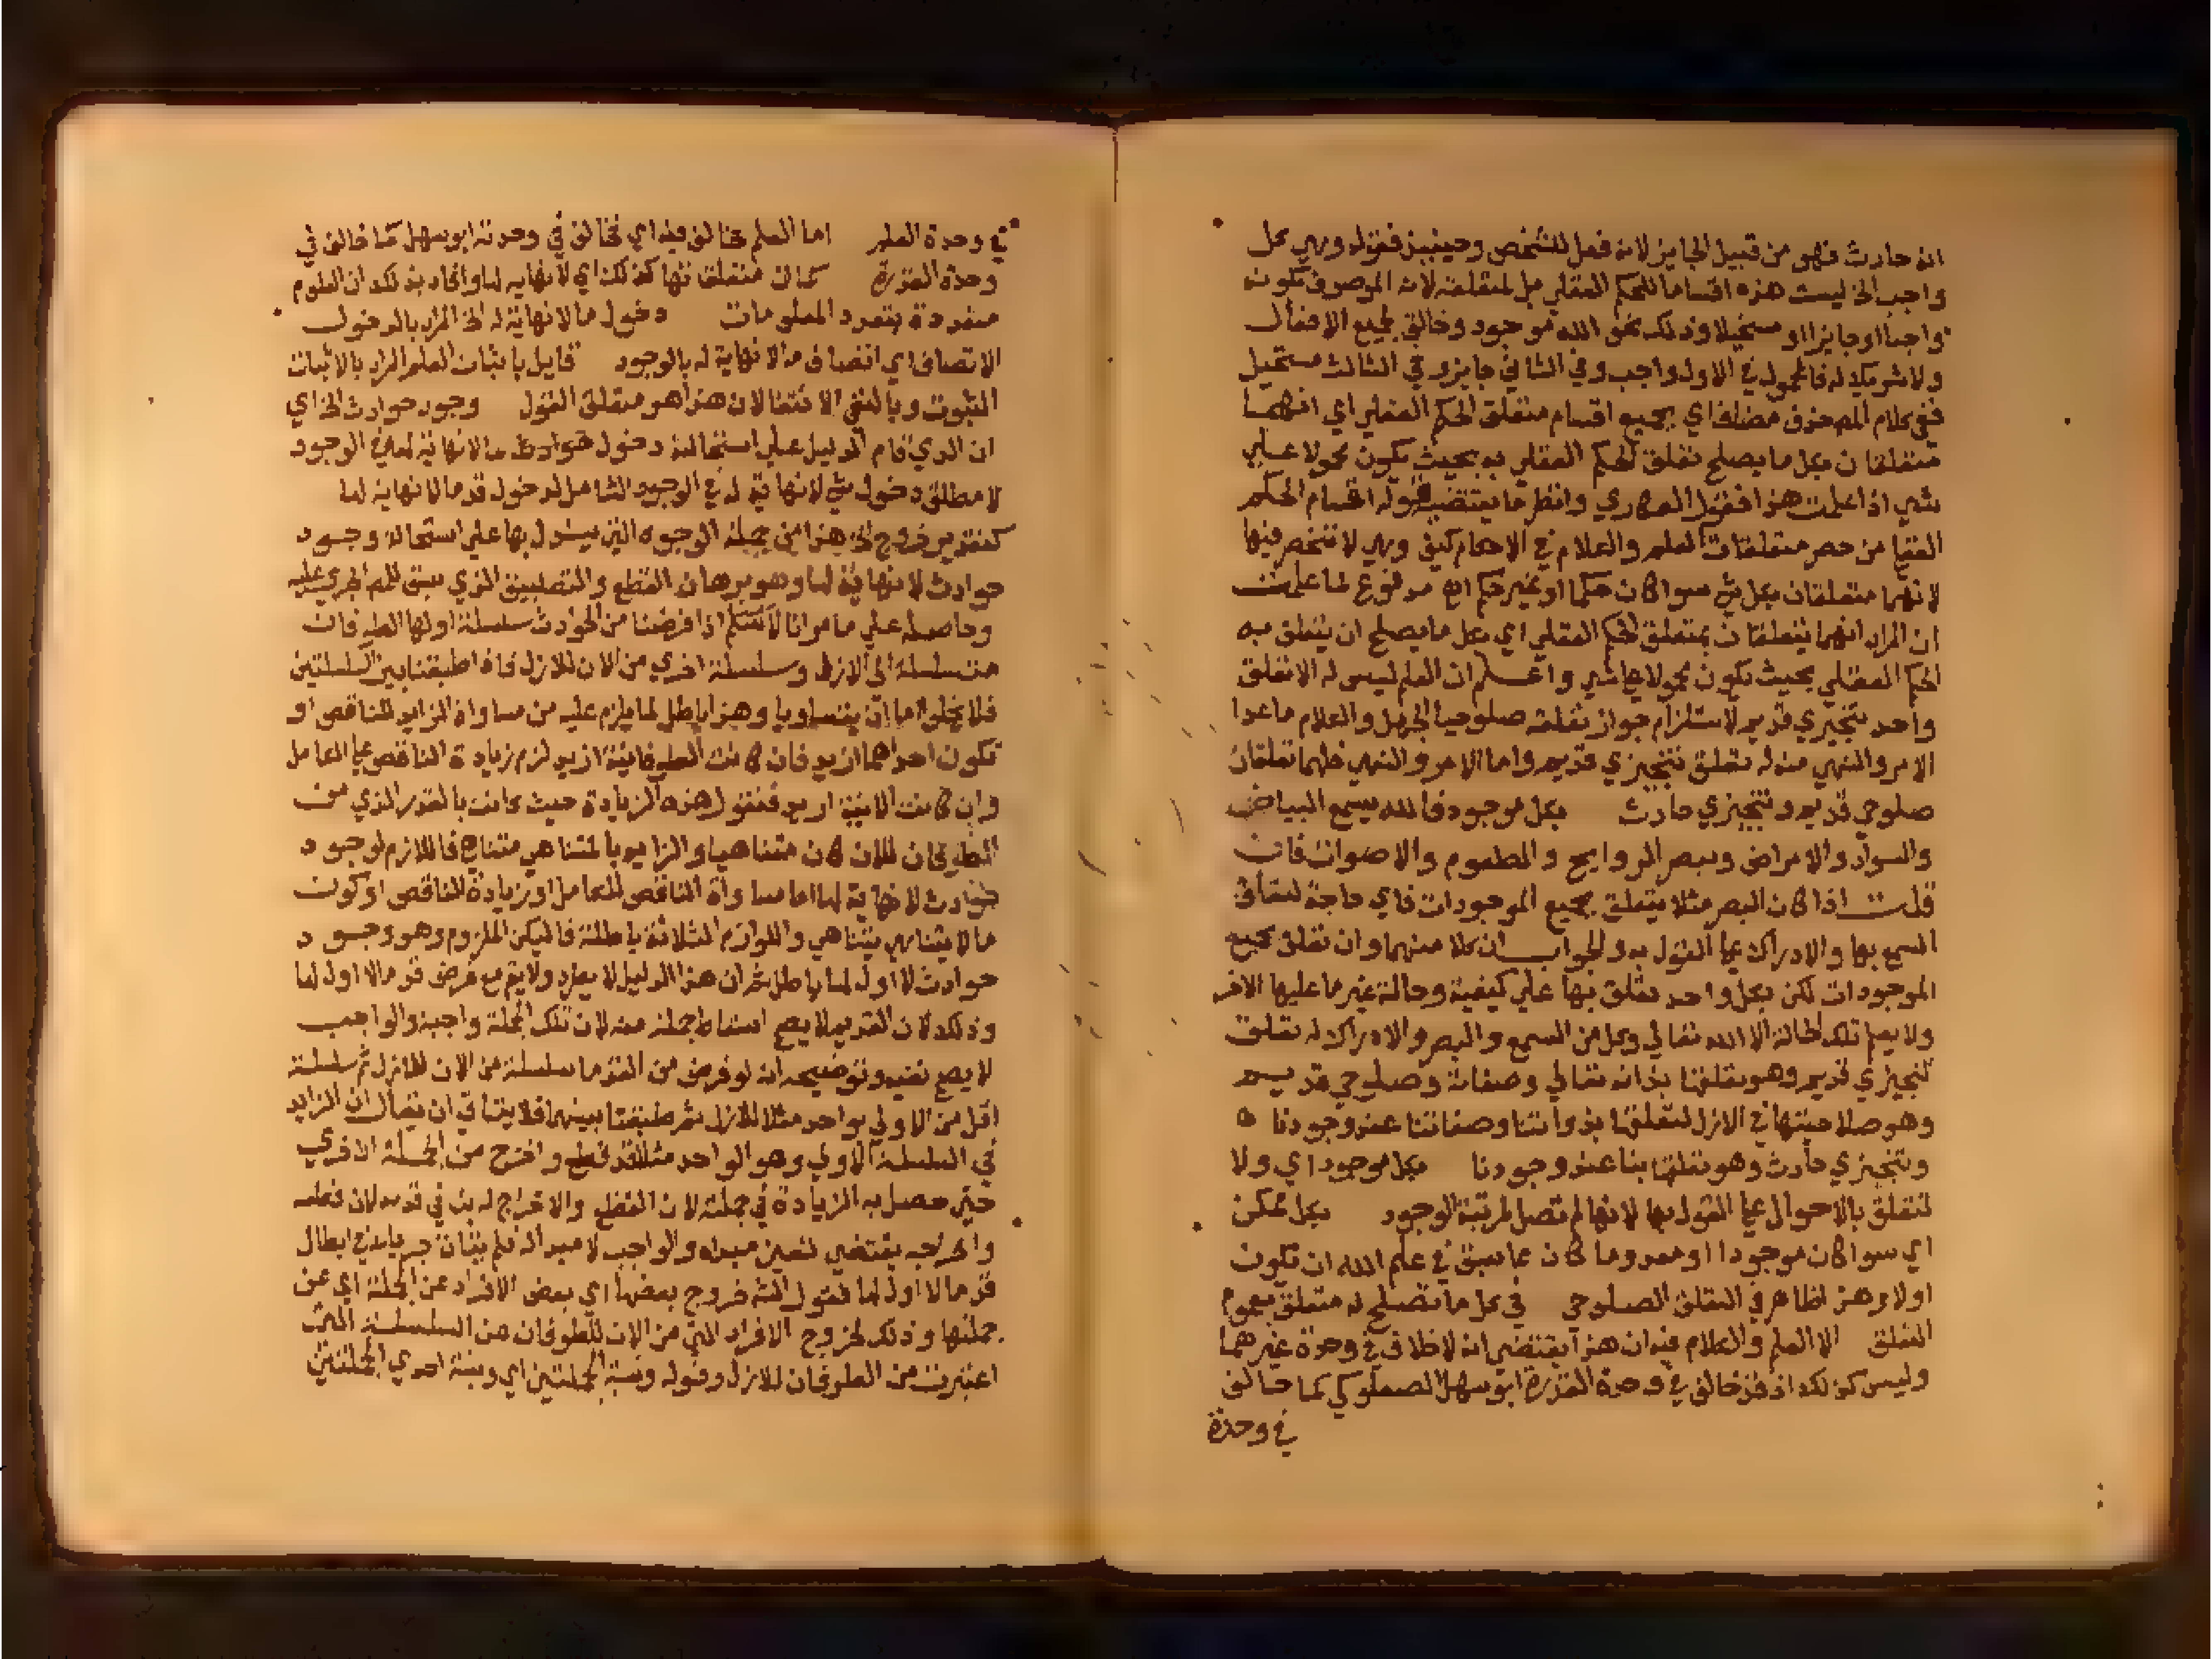 انه حادث فهو من قبيل الجايز لانه فعل للشخص وحينيذ فقوله وهي كل
واجب الخ ليست هذه اقساما للحكم العقلي بل لمتعلقه لانه الموصوف بكونه
واجبا او جايزا او مستحيلا وذلك نحو الله موجود وخالق لجميع الافعال
ولا شريك له فالمحمول في الاول واجب وفي الثاني جايز وفي الثالث مستحيل
ففي كلام المص حذف مضاف اي بجميع اقسام متعلق الحكم العقلي اي انهما
متعلقان بكل ما يصلح تعلق الحكم العقلي به بحيث يكون محمولا علي
شي اذا علمت هذا فقول السكاري وانظر ما يقتضيه قوله اقسام الحكم
العقلي من حصر متعلقات العلم والكلام في الاحكام كيف وهي لا تنحصر فيها
لانهما متعلقان بكل شي سوا كان حكما او غير حكم اه مدفوع لما علمت
ان المراد انهما يتعلقان بمتعلق الحكم العقلي اي بكل ما يصلح ان يتعلق به
الحكم العقلي بحيث يكون محمولا علي شي واعلم ان العلم ليس له الا تعلق
واحد تنجيزي قديم لاستلزام جواز تعلقه صلوحيا الجهل والكلام ماعدا
الامر والنهي منه له تعلق تنجيزي قديم واما الامر والنهي فلهما تعلقان
صلوحي قديم وتنجيزي حادث بكل موجود فالله يسمع البياض
والسواد والامراض ويبصر الروايح والمطعوم والاصوات فان
قلت اذا كان البصر مثلا يتعلق بجميع الموجودات فاي حاجة لتعلق
السمع بها والادراك علي القول به والجواب ان كلا منهما وان تعلق بجميع
الموجودات لكن بكل واحد تعلق بها علي كيفية وحالة غير ما عليها الاخر
ولا يعلم تلك الحالة الا الله تعالي وكل من السمع والبصر والادراك له تعلق
تنجيزي قديم وهو تعلقها بذاته تعالي وصفاته وصلوحي قديم
وهو صلاحيتها في الازل لتعلقها بذواتنا وصفاتنا عند وجودنا
وتنجيزي حادث وهو تعلقها بنا عند وجودنا بكل موجود اي ولا
تتعلق بالاحوال علي القول بها لانها لم تصل لمرتبة الوجود بكل ممكن
اي سوا كان موجودا او معدوما كان مما سبق في علم الله ان تكون
اولا وهذا ظاهر في التعلق الصلوحي في كل ما تصلح له متعلق بعموم
التعلق الا العلم والكلام فيه ان هذا يقتضي انه لا خلاف في وحدة غيرهما
وليس كذلك اذ قد خالف في وحدة القدرة ابو سهل الصعلوكي كما خالف
في وحدة
في وحدة العلم اما العلم خالف فيه اي خالف في وحدته ابو سهل كما خالف في
وحدة القدرة كما ان متعلقاتها كذلك اي لا نهاية لها واتحاد بذلك ان العلوم
متعددة بتعدد المعلومات دخول ما لا نهاية له الخ المراد بالدخول
الاتصاف اي اتصاف ما لا نهاية له بالوجود قايل باثبات العلم المراد بالاثبات
الثبوت وبالنفي الانتفا لان هذا هو متعلق القول وجود حوادث الخ اي
ان الذي قام الدليل علي استحالته دخول حوادث ما لا نهاية لها في الوجود
لا مطلق دخول شي لا نهاية له في الوجود الشامل لدخول قدما لا نهاية لها
كتقدير خروج الخ هذا من جملة الوجوه التي يستدل بها علي استحالة وجود
حوادث لا نهاية لها وهو برهان القطع والتطبيق الذي سبق للمص الجري عليه
وحاصله علي ما مر انا لا نسلم اذا فرضنا من الحوادث سلسلة اولها الطوفان
من سلسلة الي الازل وسلسلة اخري من الان للازل فاذا طبقنا بين السلسلتين
فلا يخلوا اما ان يتساويا وهذا باطل لما يلزم عليه من مساواة الزايد للناقص او
تكون احداهما ازيد فان كانت الطوفانية ازيد لزم زيادة الناقص علي الكامل
وان كانت الانية ازيد فنقول هذه الزيادة حيث كانت بالقدر الذي من
الطوفان للان كان متناهيا والزايد بالمتناهي متناهي فاللازم لوجود
حوادث لا نهاية لها اما مساواة الناقص للكامل او زيادة الناقص او كون
ما لا يتناهي يتناهي واللوازم الثلاثة باطلة فاليكن الملزوم وهو وجود
حوادث لا اول لها باطل ثم ان هذا الدليل لا يطرد ولا يتم مع فرض قدما لا اول لها
وذلك لان القديم لا يصح اسقاط جملة منه لان تلك الجملة واجبة والواجب
لا يصح نفيه وتوضيحه انه لو فرض من القدما سلسلة من الان للازل ثم سلسلة
اقل من الاولي بواحد مثلا للازل ثم طبقنا بينهما فلا يتاتي ان يقال ان الزايد
في السلسلة الاولي وهو الواحد مثلا قد قطع واخرج من الجملة الاخري
حتي حصل به الزيادة في جملته لان القطع والاخراج له ينافي قدمه لان قطعه
واخراجه يقتضي تعين مبداه والواجب لا مبدا له فلم يتات جريانه في ابطال
قدما لا اول لها فقول الشه خروج بعضها اي بعض الافراد عن الجملة اي عن
جملتها وذلك لخروج الافراد التي من الان للطوفان من السلسلة التي
اعتبرت من الطوفان للازل وقوله ونسبة الجملتين اي ونسبة احدي الجملتين